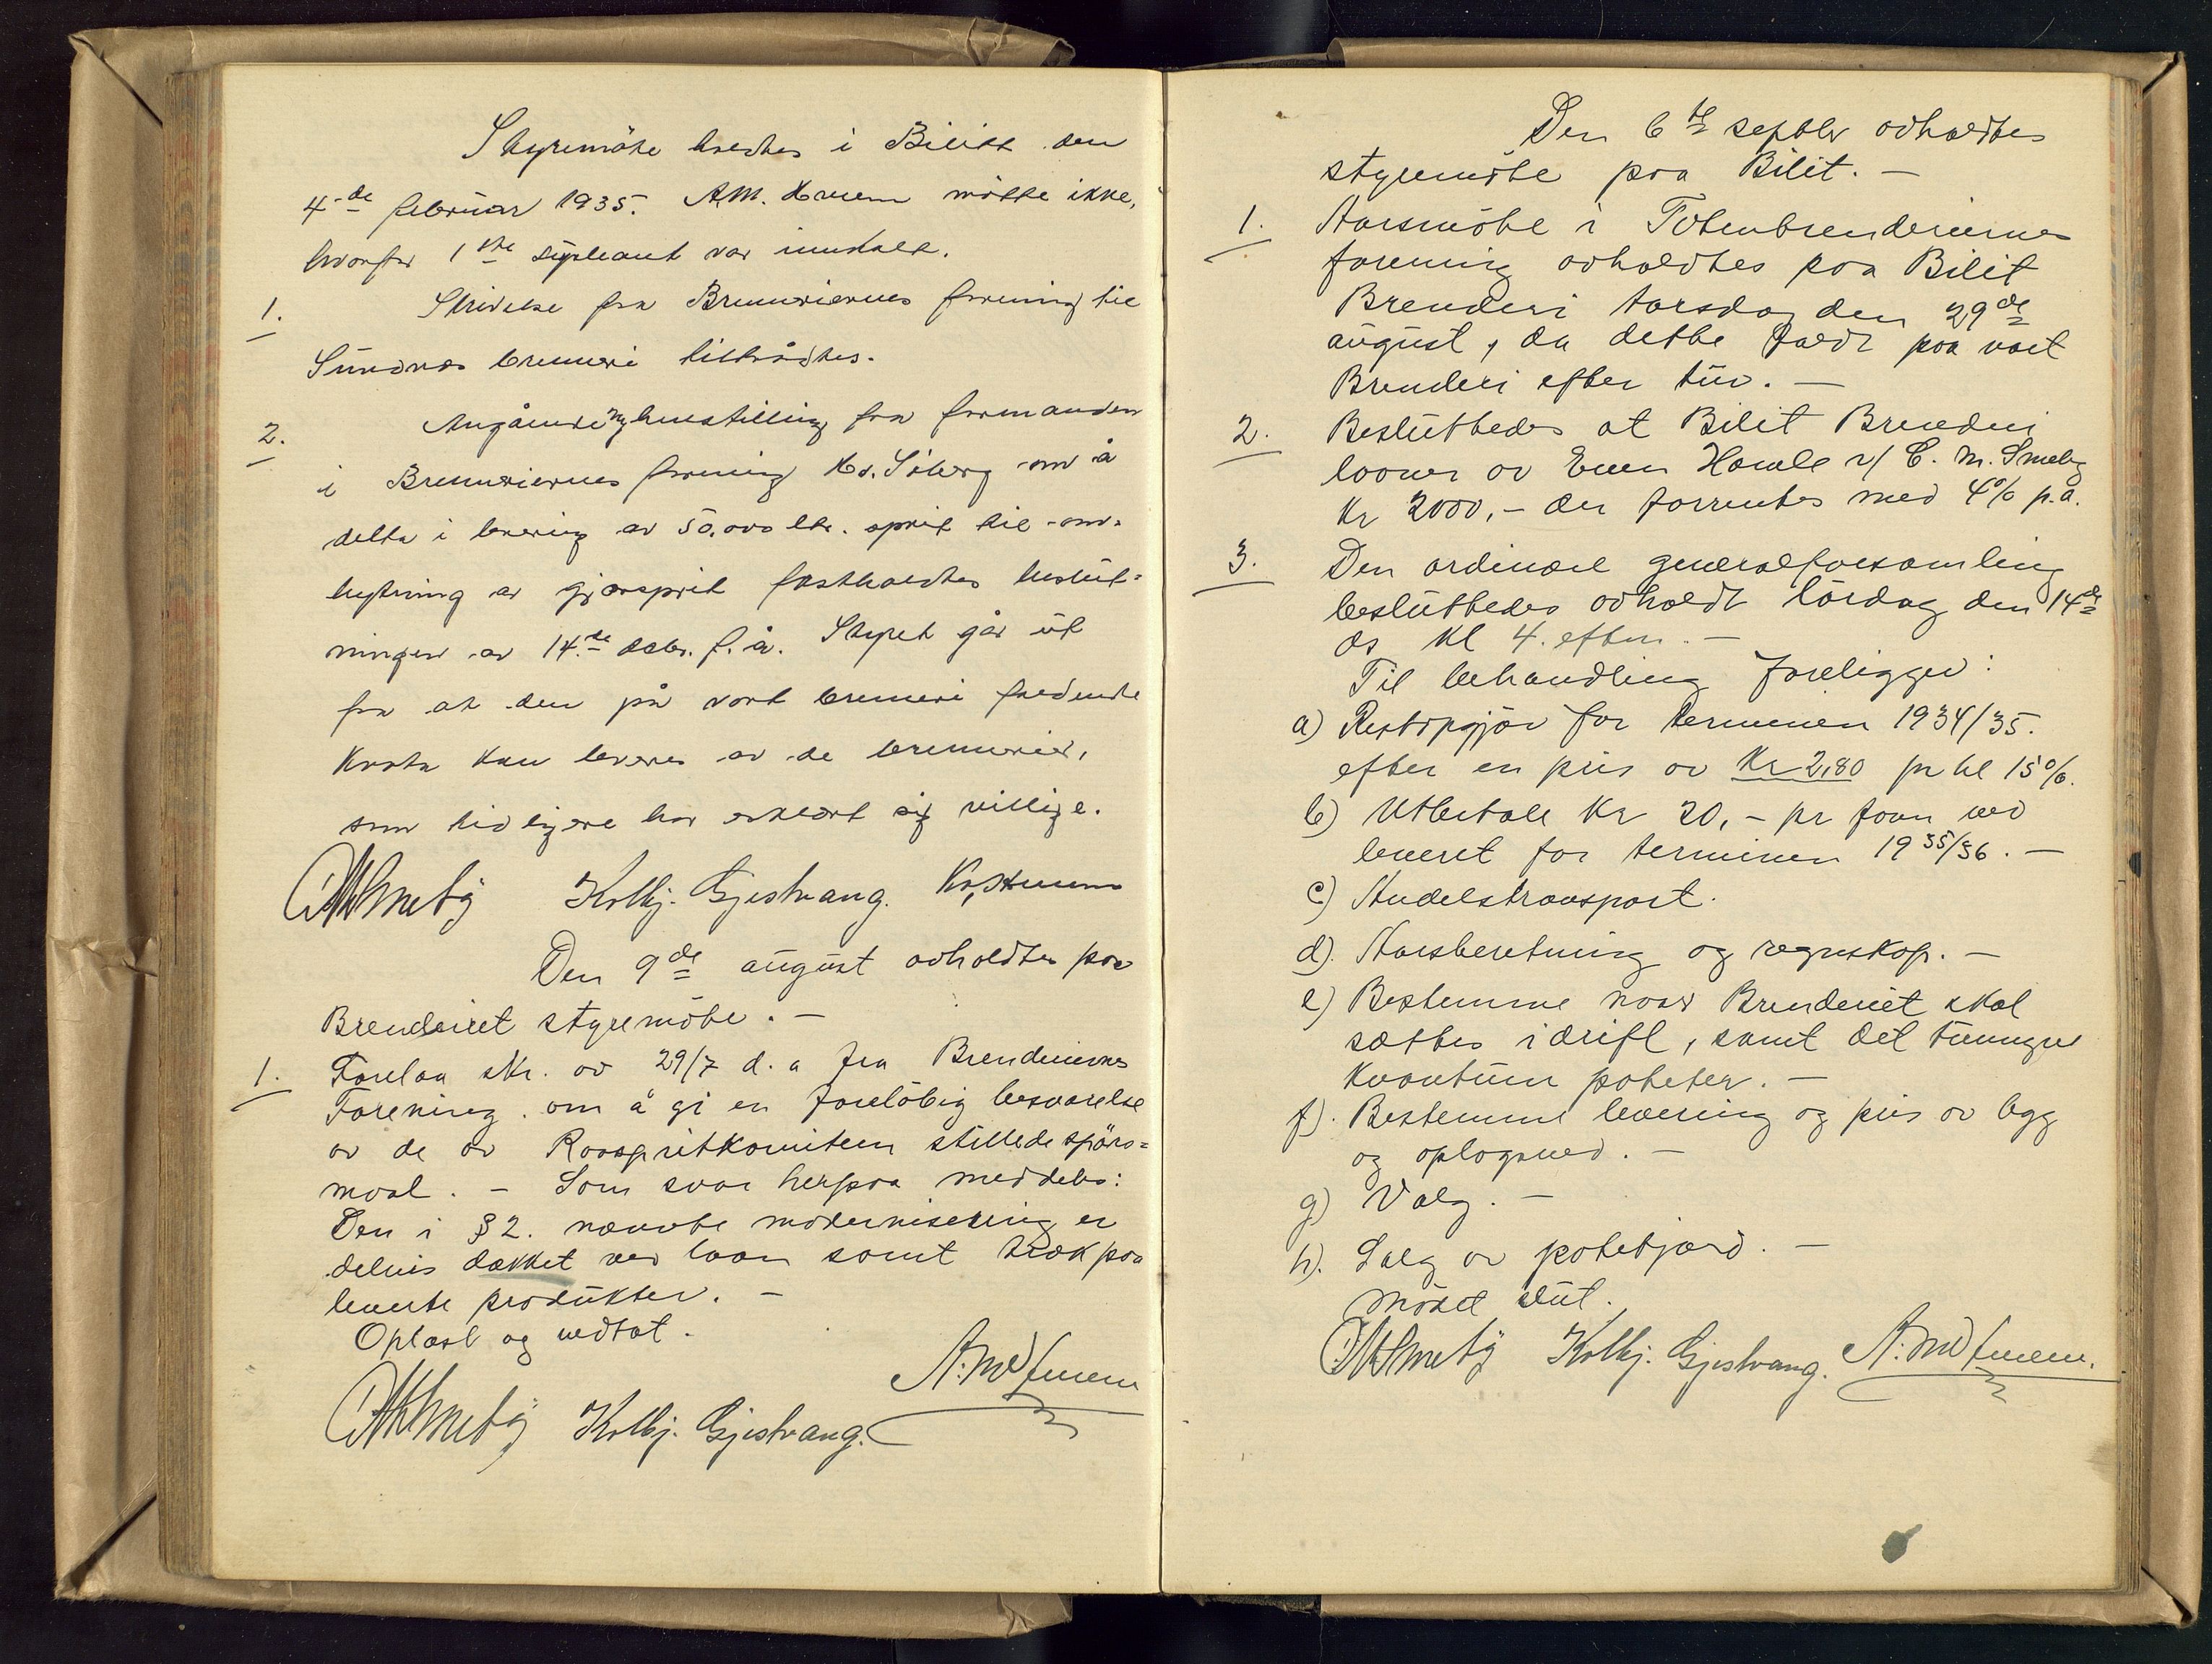 Styremöte holdtes i Bilitt den
4-de februar 1935. A.M. Hveem mötte ikke,
hvorfor 1ste supleant var innkalt.
1. Skrivelse fra Brenneriernes forening til
Sundnes brenneri tiltrådtes.
2. Angående ny henstilling fra formanden
i Brenneriernes forening Hr. Siberg om å
delta i levering av 50,000 ltr. sprit til om-
bytning av gjærsprit fastholdtes beslut-
ningen av 14.de debr. f.å. Styret går ut
fra at den på vort brenneri faldende
kvota kan leveres av de brennerier,
som tidligere har erklært sig villige.
CMSmeby Kolbj. Gjestvang.
Den 9de august avholdtes paa
Brenderiet styremöte. —
1. Forelaa skr. av 29/7 d.a fra Brenderiernes
Forening. om å gi en foreløbig besvarelse
av de av Raaspritkomiteen stillede spörs=
maal. — Som svar herpaa meddeles:
Den i § 2. nævnte modernisering er
delvis dækket ved laan samt træk paa
leverte produkter. —
Oplæst og vedtat.
CMSmeby Kolbj. Gjestvang. A. M. Hveem
Den 6te septbr avholdtes
styremöte paa Bilit. —
1. Aarsmöte i Totenbrenderiernes
forening avholdtes paa Bilit
Brenderi torsdag den 29de
august, da dette faldt paa vort
Brenderi efter tur. —
2. Besluttedes at Bilit Brenderi
laaner av Even Homle v/ C. M. Smeby
Kr 2000,- der forrentes med 4% p.a.
3. Den ordinære generalforsamling
besluttedes avholdt lördag den 14de
ds kl 4. efterm. —
Til behandling foreligger:
a) Restopgjör for terminen 1934/35.
efter en pris av Kr 2,80 pr hl 15%.
b) Utbetale Kr 20,- pr favn ved
leveret for terminen 1935/36. —
c) Andelstransport.
d). Aarsberetning og regnskap. —
e) Bestemme naar Brenderiet skal
sættes i drift, samt det tvungne
kvantum poteter. —
f). Bestemme levering og pris av bygg
og oplagsved. —
g) Valg. —
h). Salg av potetjord. —
Mödet slut.
CMSmeby Kolbj. Gjestvang. A. M. Hveem.